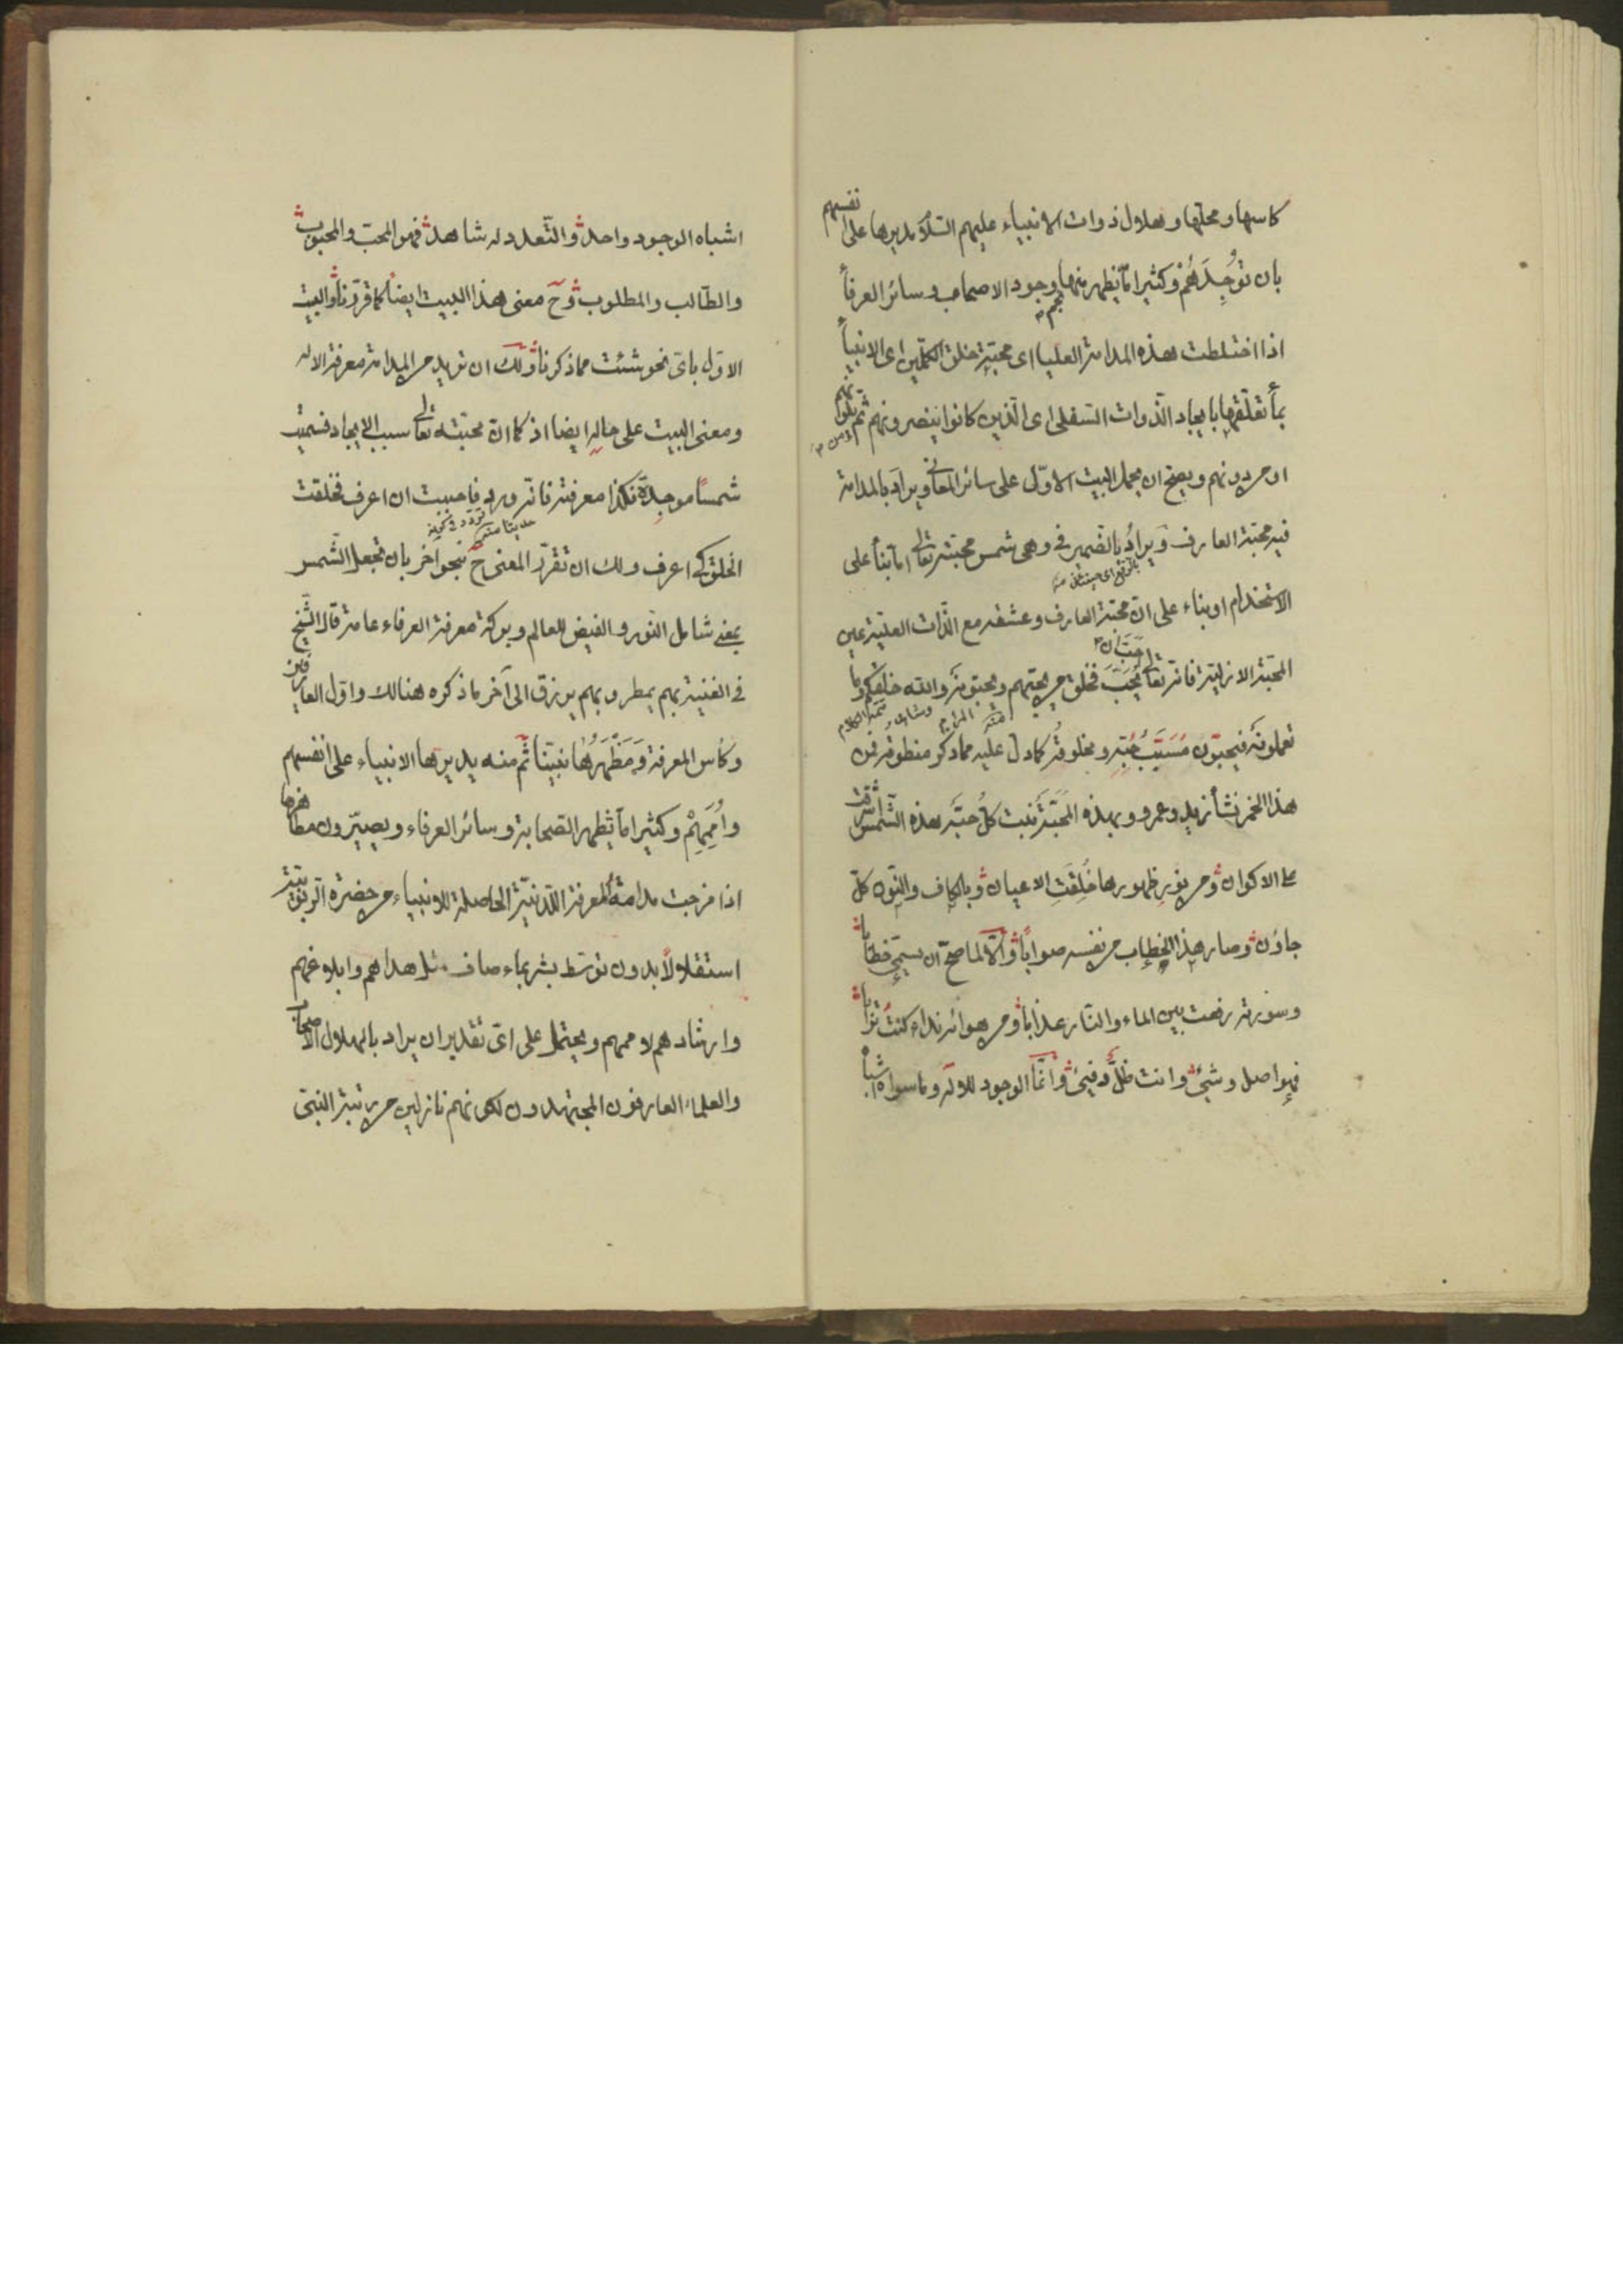 كاسها ومحلها وهلال ذوات الانبياء عليهم السلام يديرها على انفسهم
بان توجدهم وكثيرا ما يظهر منها وجود الاصحاب وسائر العرفاء
اذا اختلطت هذه المدامة العليا اى محبة خلق الكملين اى الانبياء
بما تعلقها بايجاد الذوات السفلى اى الذين كانوا ينصرونهم ثم
او من دونهم ويصح ان يحمل البيت الاول على سائر المعانى ويراد بالمدامة
فيه محبة العارف ويراد بالضمير فى وهى شمس محبته تعالى اما بناء على
الاستخدام او بناء على ان محبة العارف وعشقه مع الذات العلية عين
المحبة الازلية فانه تعالى يحب فخلق من يحبهم ويحبونه والله خلقكم وما
تعملون فيحبون ومخلوقه كما دل عليه مما ذكر منطوقه فمن
هذا الخمر نشأ زيد وعمرو وبهذه المحبة نبت كل حبة هذه الشمس اشرقت
على الاكوان ومن نور ظهورها خلقت الاعيان وبالكاف والنون كل
جاؤن وصار هذا الخطاب من نفسه صوابا والا لما صح ان يسمى خطابا
وسورته رفعت بين الماء والنار عذابا ومن هوائه نداء كنت ترابا
فهو اصل وشئ وانت ظل وفيئ وانما الوجود للاله وما سواه اشباه
اشباه الوجود واحد والتعدد له شاهد فهو المحب والمحبوب
والطالب والمطلوب وح معنى هذا البيت ايضا كما قررنا والبيت
الاول باى نحو شئت مما ذكرنا ولك ان تريد من المدامة معرفة الاله
ومعنى البيت على حاله ايضا اذ كما ان محبته تعالى سبب الايجاد فسميت
شمسا موجدة فكذا معرفته فانه ورد فاحببت ان اعرف فخلقت
الخلق لكى اعرف ولك ان تقرر المعنى ح بنحو آخر بان تجعل الشمس
بمعنى شامل النور والفيض للعالم وبركة معرفة العرفاء عامة قال الشيخ
فى الغنية بهم يمطر وبهم يرزق الى آخر ما ذكره هنالك واول العارفين
وكأس المعرفة ومظهرها نبينا ثم منه يديرها الانبياء على انفسهم
واممهم وكثيرا ما يظهر الصحابة وسائر العرفاء ويصيرون مظاهرها
اذا مزجت مدامة المعرفة اللدنية الحاصلة للانبياء من حضرة الربوبية
استقلالا بدون توسط بشر بماء صاف مثل هداهم وابلاغهم
وارشادهم لاممهم ويحتمل على اى تقدير ان يراد بالهلال الاصحاب
والعلماء العارفون المجتهدون لكونهم نازلين من رتبة النبى